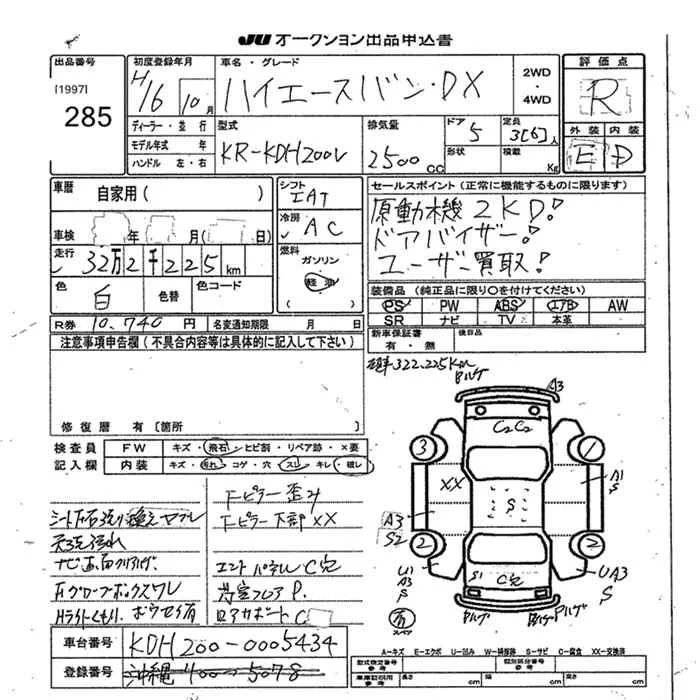 JU オークション出品申込書
出品番号
[1997]
285
初度登録年月
H16 10月
車名・グレード
ハイエースバン・DX
2WD
・
4WD
評価点
R
外装 内装
E D
ディーラー・並行
モデル年式 年
ハンドル 左・右
型式
KR-KDH200V
排気量
2500 CC
ドア
5
形状
定員
3[6]人
積載
Kg
車歴 自家用( )
車検 年 月( 日)
走行
32万2千225km
色
白
色替
色コード
シフト
IAT
冷房
AC
燃料
ガソリン
軽油
( )
セールスポイント(正常に機能するものに限ります)
原動機2KD!
ドアバイザー!
ユーザー買取!
装備品(純正品に限り○を付けてください)
PS PW ABS エアB AW
SR ナビ TV 本革
新車保証書
有・無
後日品
R券 10,740円
名変通知期限 月 日
注意事項申告欄(不具合内容等は具体的に記入して下さい)
修復歴 有[箇所 ]
322,225Km
検査員
記入欄
FW キズ・飛石・ヒビ割・リペア跡・×要
内装 キズ・汚れ・コゲ・穴・スレ・キレ・破レ
Fピラー歪み
Fピラー下部XX
エンドパネルC穴
荷室フロアP.
天張汚れ
Fグローブボックスワレ
Hライトくもり
A3
C2 C2
3
1
XX
S
A1
S
A3
S2
2
2
U1
A3
S
S1 C穴
UA3
S
Bハゲ
有
スペア
車台番号 KDH200-0005434
登録番号 沖縄400 5078
A-キズ E-エクボ U-凹み W-補修跡 S-サビ C-腐食 XX-交換済
型式指定番号
参考
類別区分番号
参考
車庫証明用
参考
長さ cm 幅 cm 高さ cm